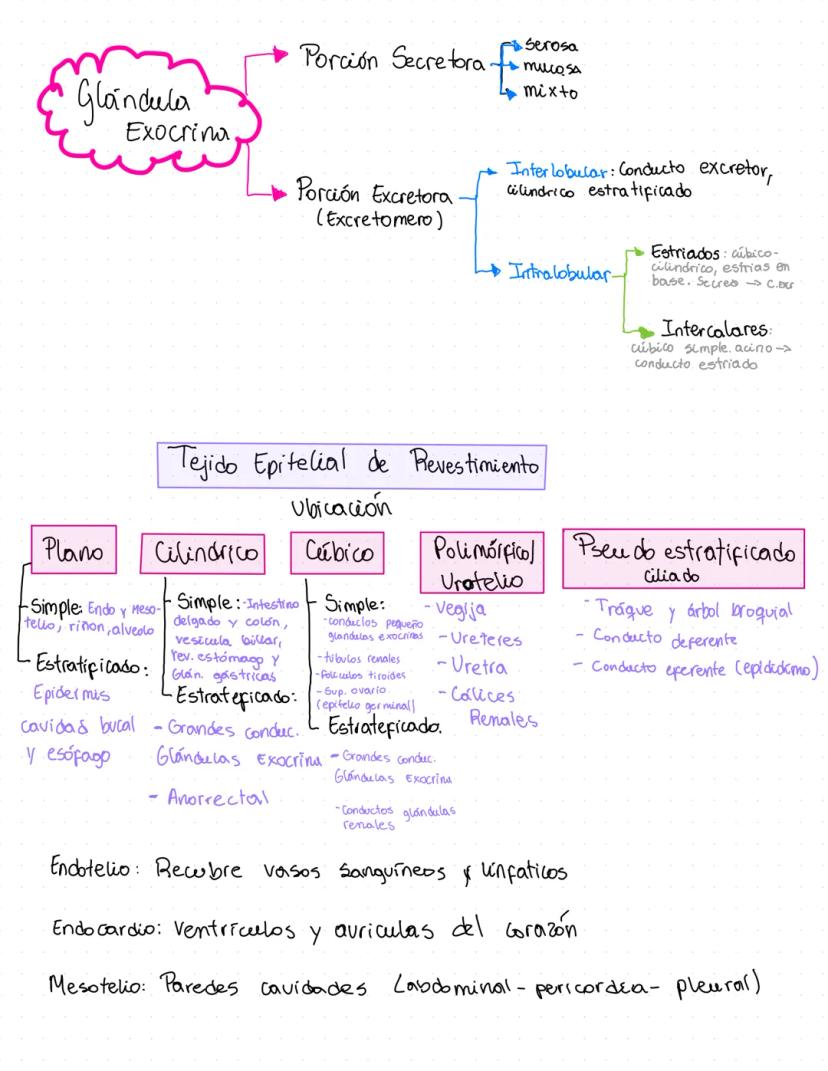 Glándula
Exocrina
Porción Secretora
serosa
mucosa
mixto
Porción Excretora
(Excretomero)
Interlobular: Conducto excretor,
cilindrico estratificado
Intralobular
Estriados: cúbico-
cilíndrico, estrias en
base. Secreo → C.
Intercalares:
cúbico simple. acino →
conducto estriado
Tejido Epitelial de Revestimiento
Ubicación
Plano
Simple: Endo y Meso-
telio, riñon, alveolo
Estratificado:
Epidermis
cavidad bucal
y esófago
Cilindrico
Simple: -Intestino
delgado y colón,
vesícula biliar,
rev. estómago y
Glán. gástricas
Estrateficado:
- Grandes conduc.
Glándulas Exocrina
- Anorrectal
Cúbico
Simple:
-conductos pequeño
glandulas exocrinas
-túbulos renales
-Folículos tiroides
-Sup. ovario
(epitelio germinal)
Estrateficado.
- Grandes conduc.
Glándulas Exocrina
-Conductos glándulas
renales
Polimórfico/
Urotelio
- Vegija
- Ureteres
- Uretra
- Cálices
Renales
Pseudo estratificado
ciliado
- Tráque y árbol broquial
- Conducto deferente
- Conducto eferente (epididimo)
Endotelio: Recubre vasos sanguíneos y linfaticos
Endocardio: ventrículos y auriculas del corazón
Mesotelio: Paredes cavidades (abdominal - pericordea - pleural)